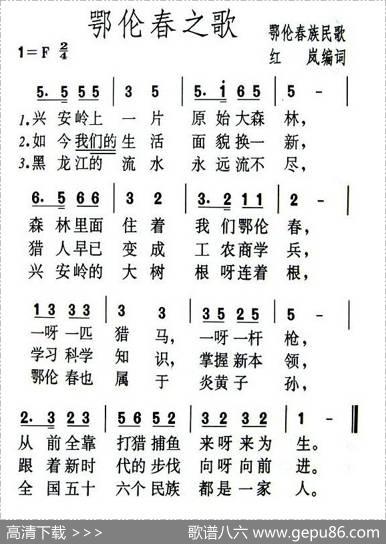 鄂伦春之歌
1=F 2/4
鄂伦春族民歌
红 岚编词
5. 5 5 5 | 3 5 | 5. i 6 5 | 5 - |
1.兴 安岭上 一 片 原 始大森 林,
2.如 今我们的 生 活 面 貌换一 新,
3.黑 龙江的 流 水 永 远流不 尽,
6. 5 6 6 | 3 2 | 3. 2 1 1 | 2 - |
森 林里面 住 着 我 们鄂伦 春,
猎 人早已 变 成 工 农商学 兵,
兴 安岭的 大 树 根 呀连着 根,
1 3 3 3 | 3 3 | 3 5 2 5 | 5 - |
一呀一匹 猎 马, 一呀一杆 枪,
学习科学 知 识, 掌握新本 领,
鄂伦 春也 属 于 炎黄子 孙,
2. 3 2 3 | 5 6 5 2 | 3 2 3 2 | 1 - ‖
从 前全靠 打猎捕鱼 来呀来为 生。
跟 着新时 代的步伐 向呀向前 进。
全 国五十 六个民族 都是一家 人。
高清下载 >>>
歌谱八六 www.gepu86.com